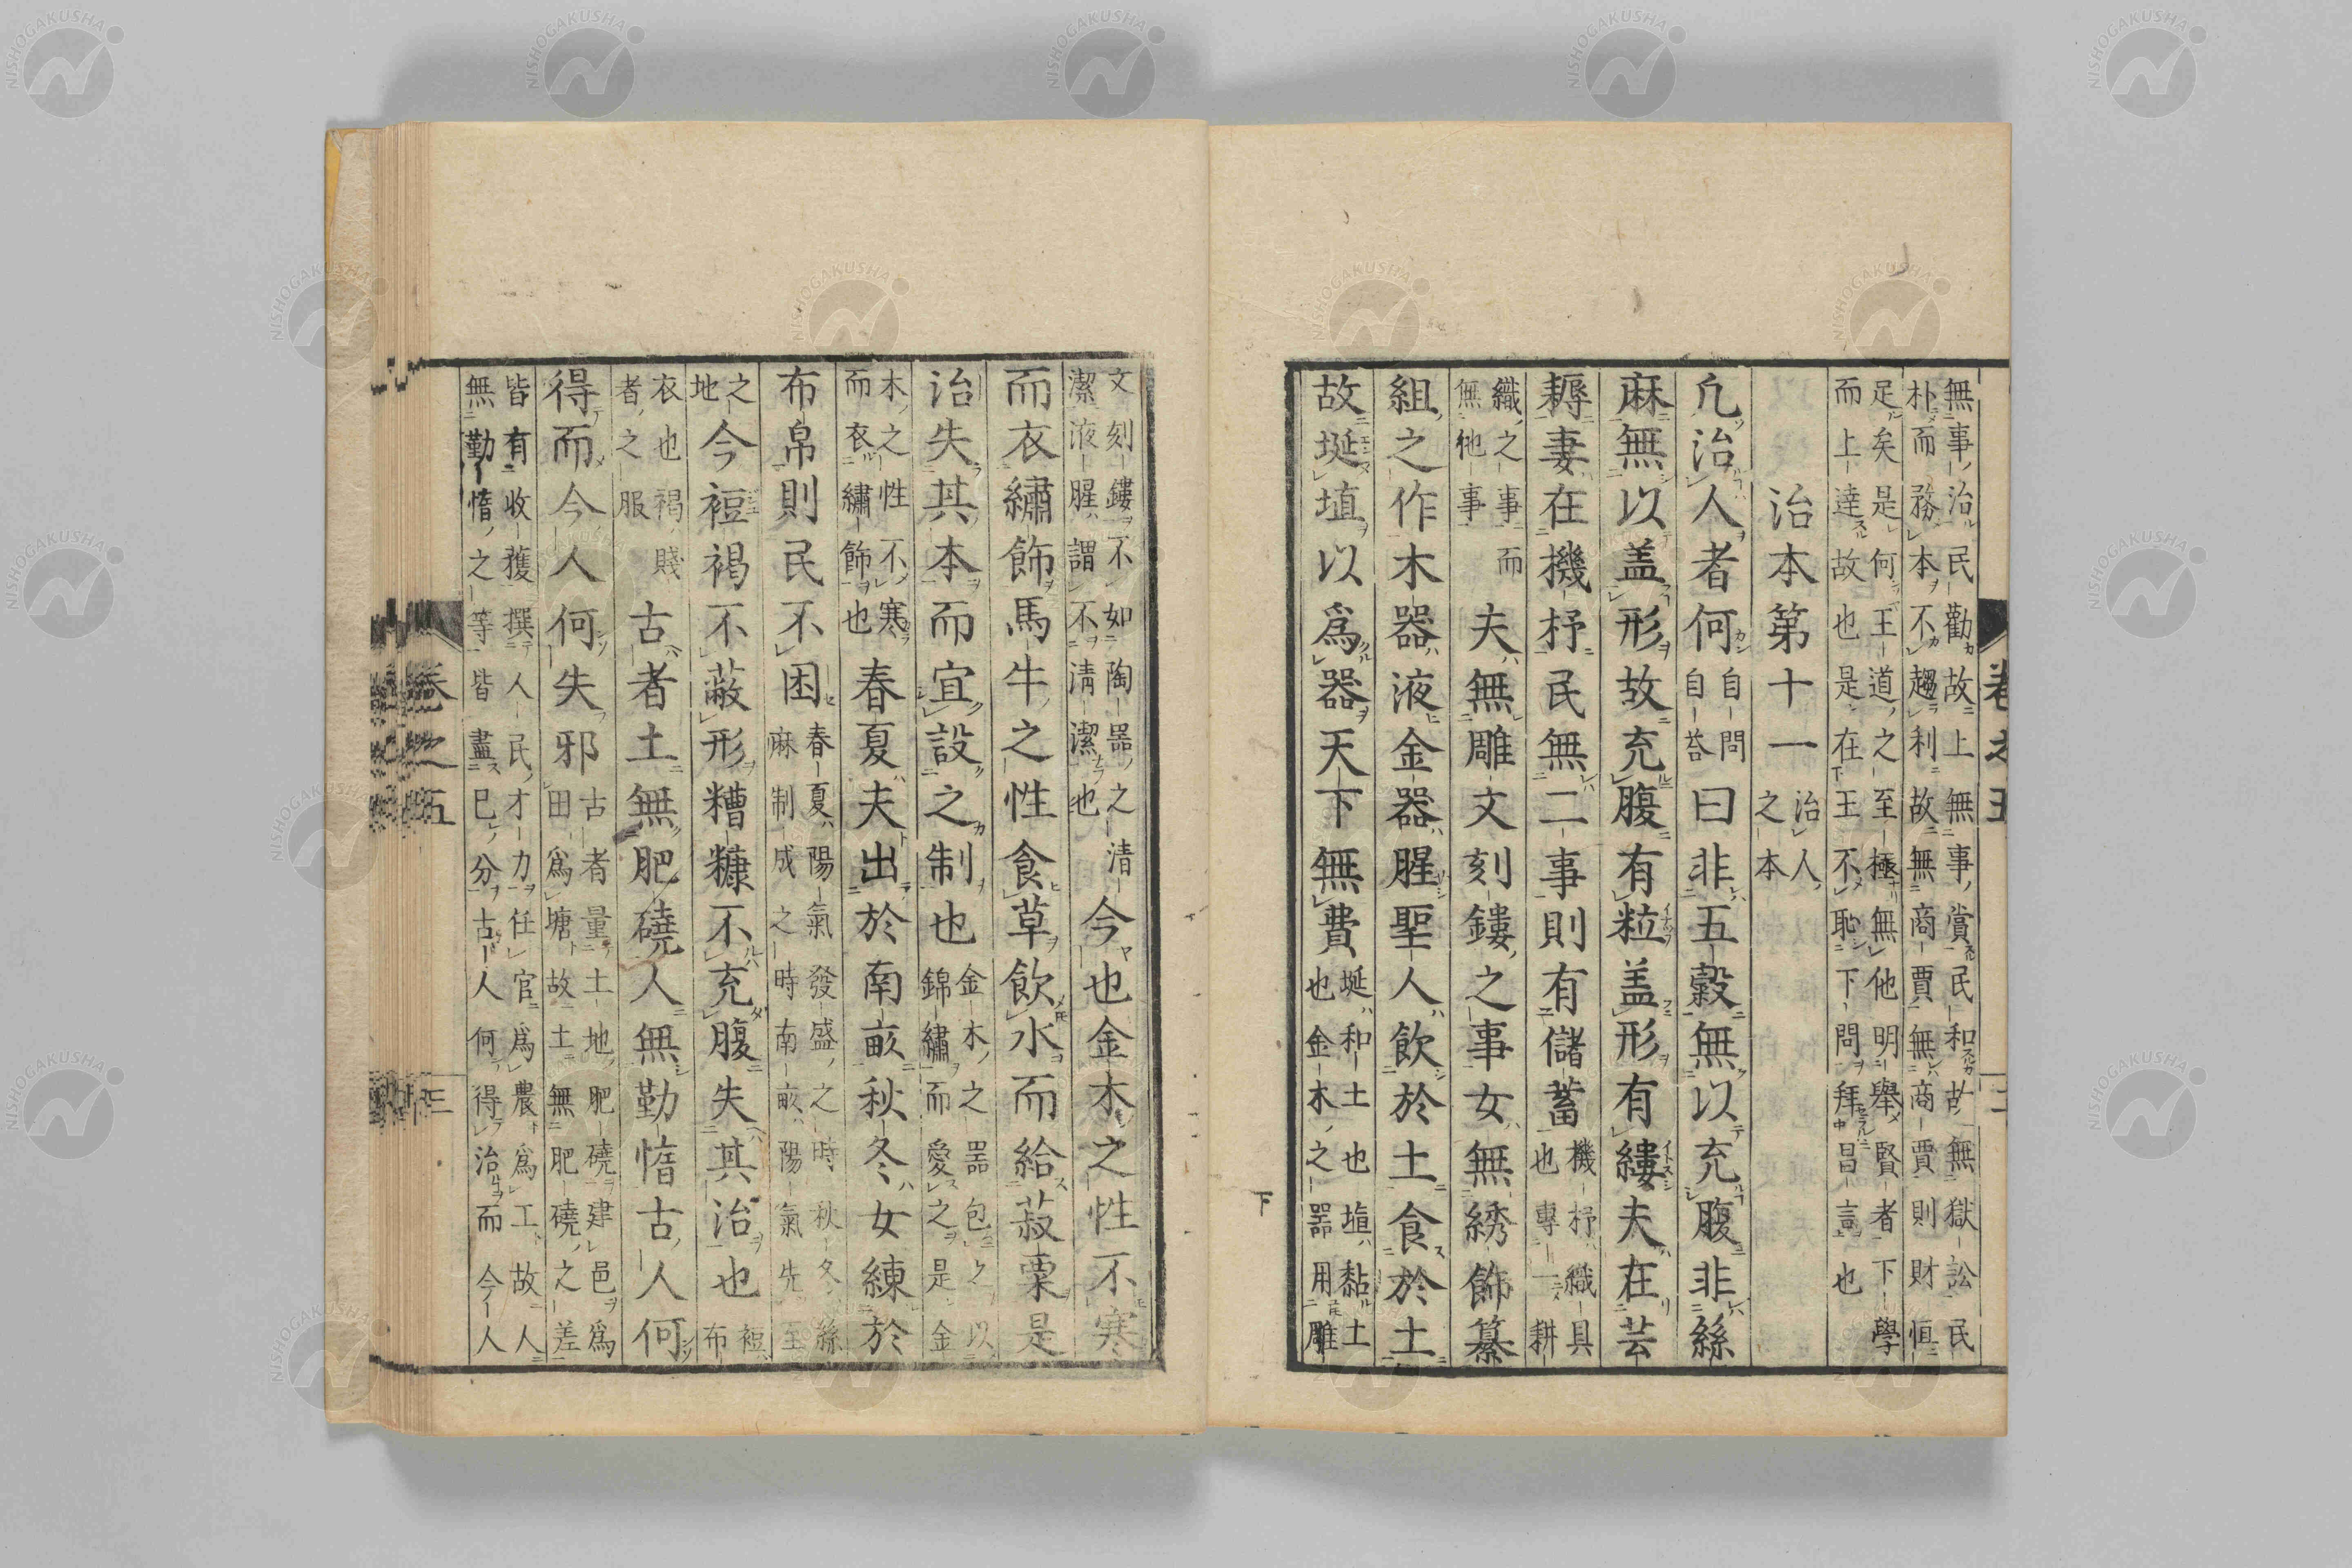 無事治民勸故上無事賞民和故無獄訟民
朴而務本不趨利故無商賈無商賈則財恒
足矣是何王道之至極無他明舉賢者下學
而上達故也是在王不恥下問拜昌言也
治本第十一 治人之本
凡治人者何 自問自荅 曰非五穀無以充腹非絲
麻無以盖形故充腹有粒盖形有縷夫在芸
耨妻在機杼民無二事則有儲蓄 機杼織具也專一耕
織之事而無他事 夫無雕文刻鏤之事女無綉飾纂
組之作木器液金器腥聖人飲於土食於土
故埏埴以爲器天下無費 埏和土也埴黏土也金木之器用雕
下
文刻鏤不如陶器之清潔液腥謂不清潔也 今也金木之性不寒
而衣繡飾馬牛之性食草飲水而給菽粟是
治失其本而宜設之制也 金木之器包之以錦繡而愛之是金
木之性不寒而衣繡飾也 春夏夫出於南畝秋冬女練於
布帛則民不困 春夏陽氣發盛之時秋冬絲麻制成之時南畝陽氣先至
之地 今裋褐不蔽形糟糠不充腹失其治也 裋布
衣也褐賤者之服 古者土無肥磽人無勤惰古人何
得而今人何失邪 古者量土地肥磽建邑爲田爲塘故土無肥磽之差
皆有收獲撰人民才力任官爲農爲工故人
無勤惰之等皆盡巳分古人何得治而今人
卷之五
三
NISHOGAKUSHA